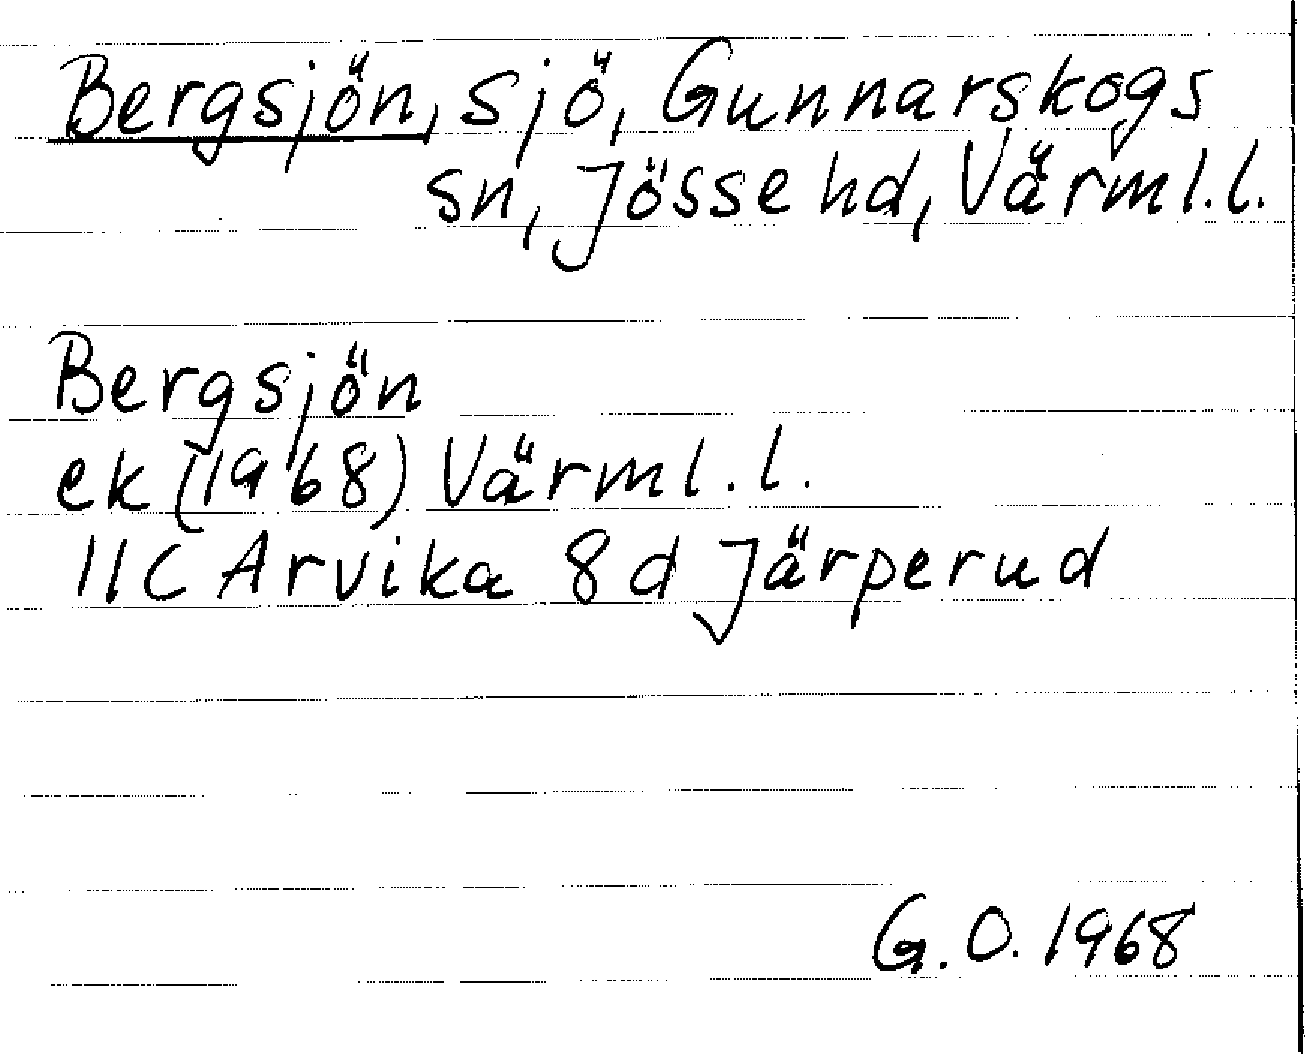 Bergsjön, sjö, Gunnarskogs
sn, Jösse hd, Värml.l.
Bergsjön
ek (1968) Värml.l.
11C Arvika 8d Järperud
G.O. 1968